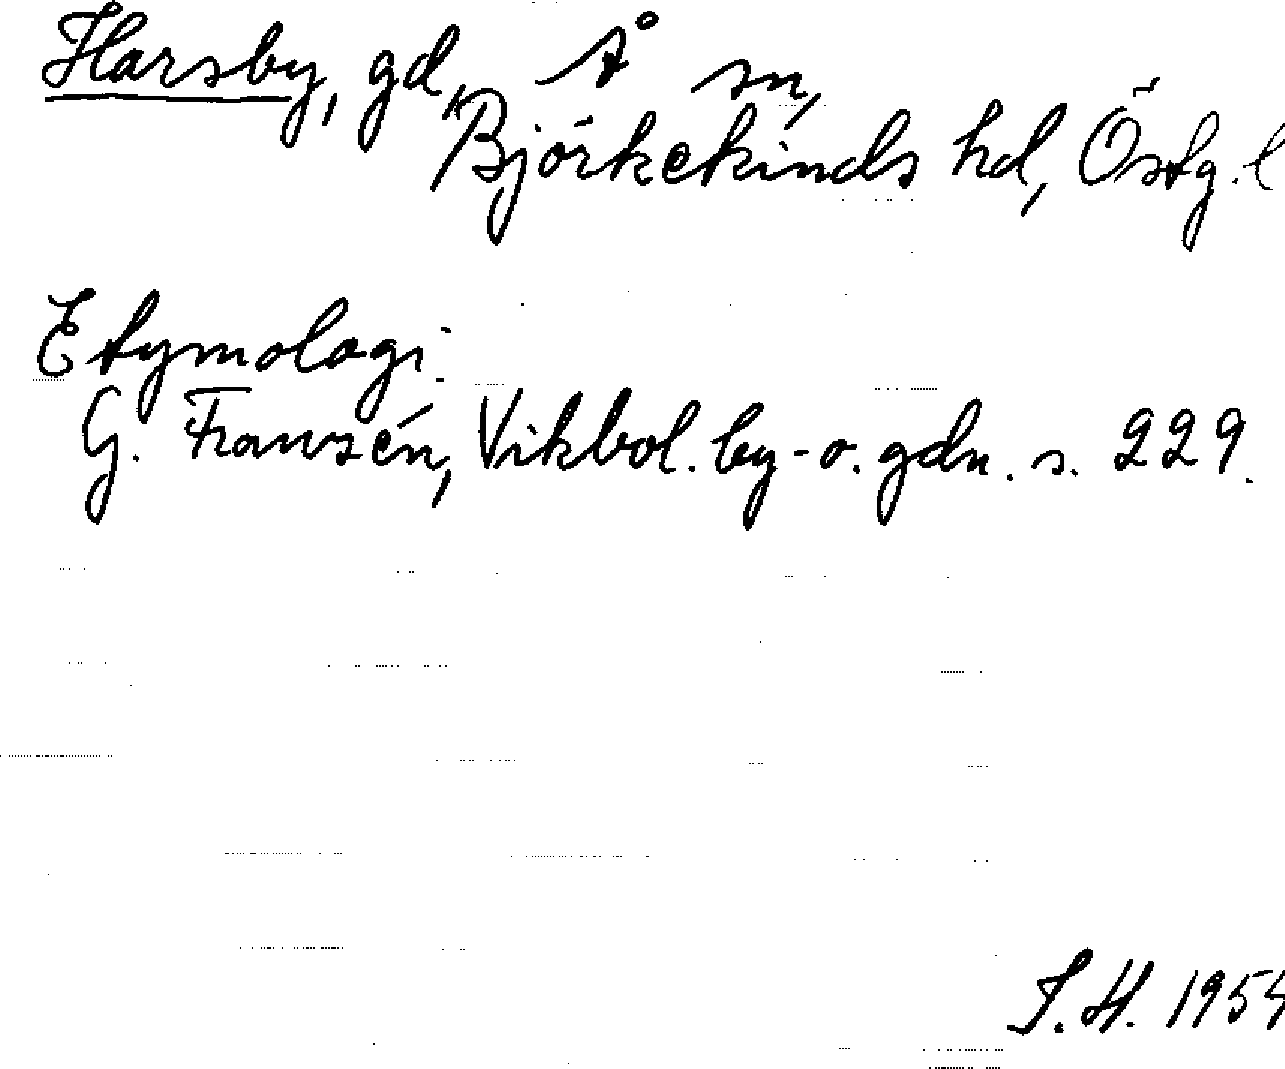 Harsby, gd, Å sn,
Björkekinds hd, Östg. l
Etymologi:
G. Franzén, Vikbol. by- o. gdn. s. 229.
S. H. 1954